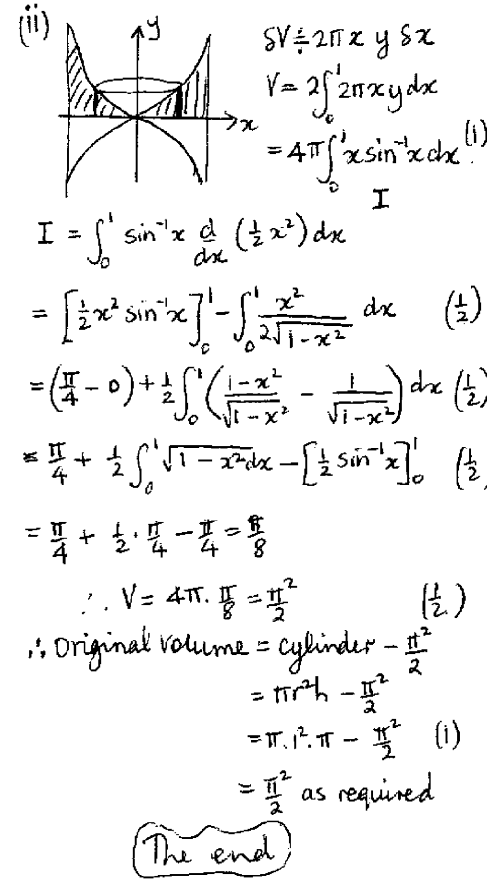 (ii)
y
x
δV ≑ 2π x y δx
V = 2∫₀¹ 2πxy dx
= 4π∫₀¹ x sin⁻¹x dx (1)
I
I = ∫₀¹ sin⁻¹x d/dx (½ x²) dx
= [½x² sin⁻¹x]₀¹ - ∫₀¹ x²/(2√(1-x²)) dx (½)
= (π/4 - 0) + ½∫₀¹ ((1-x²)/√(1-x²) - 1/√(1-x²)) dx (½)
= π/4 + ½ ∫₀¹ √(1-x²) dx - [½ sin⁻¹x]₀¹ (½
= π/4 + ½ · π/4 - π/4 = π/8
∴ V = 4π · π/8 = π²/2 (½)
∴ Original volume = cylinder - π²/2
= πr²h - π²/2
= π.1².π - π²/2 (1)
= π²/2 as required
The end